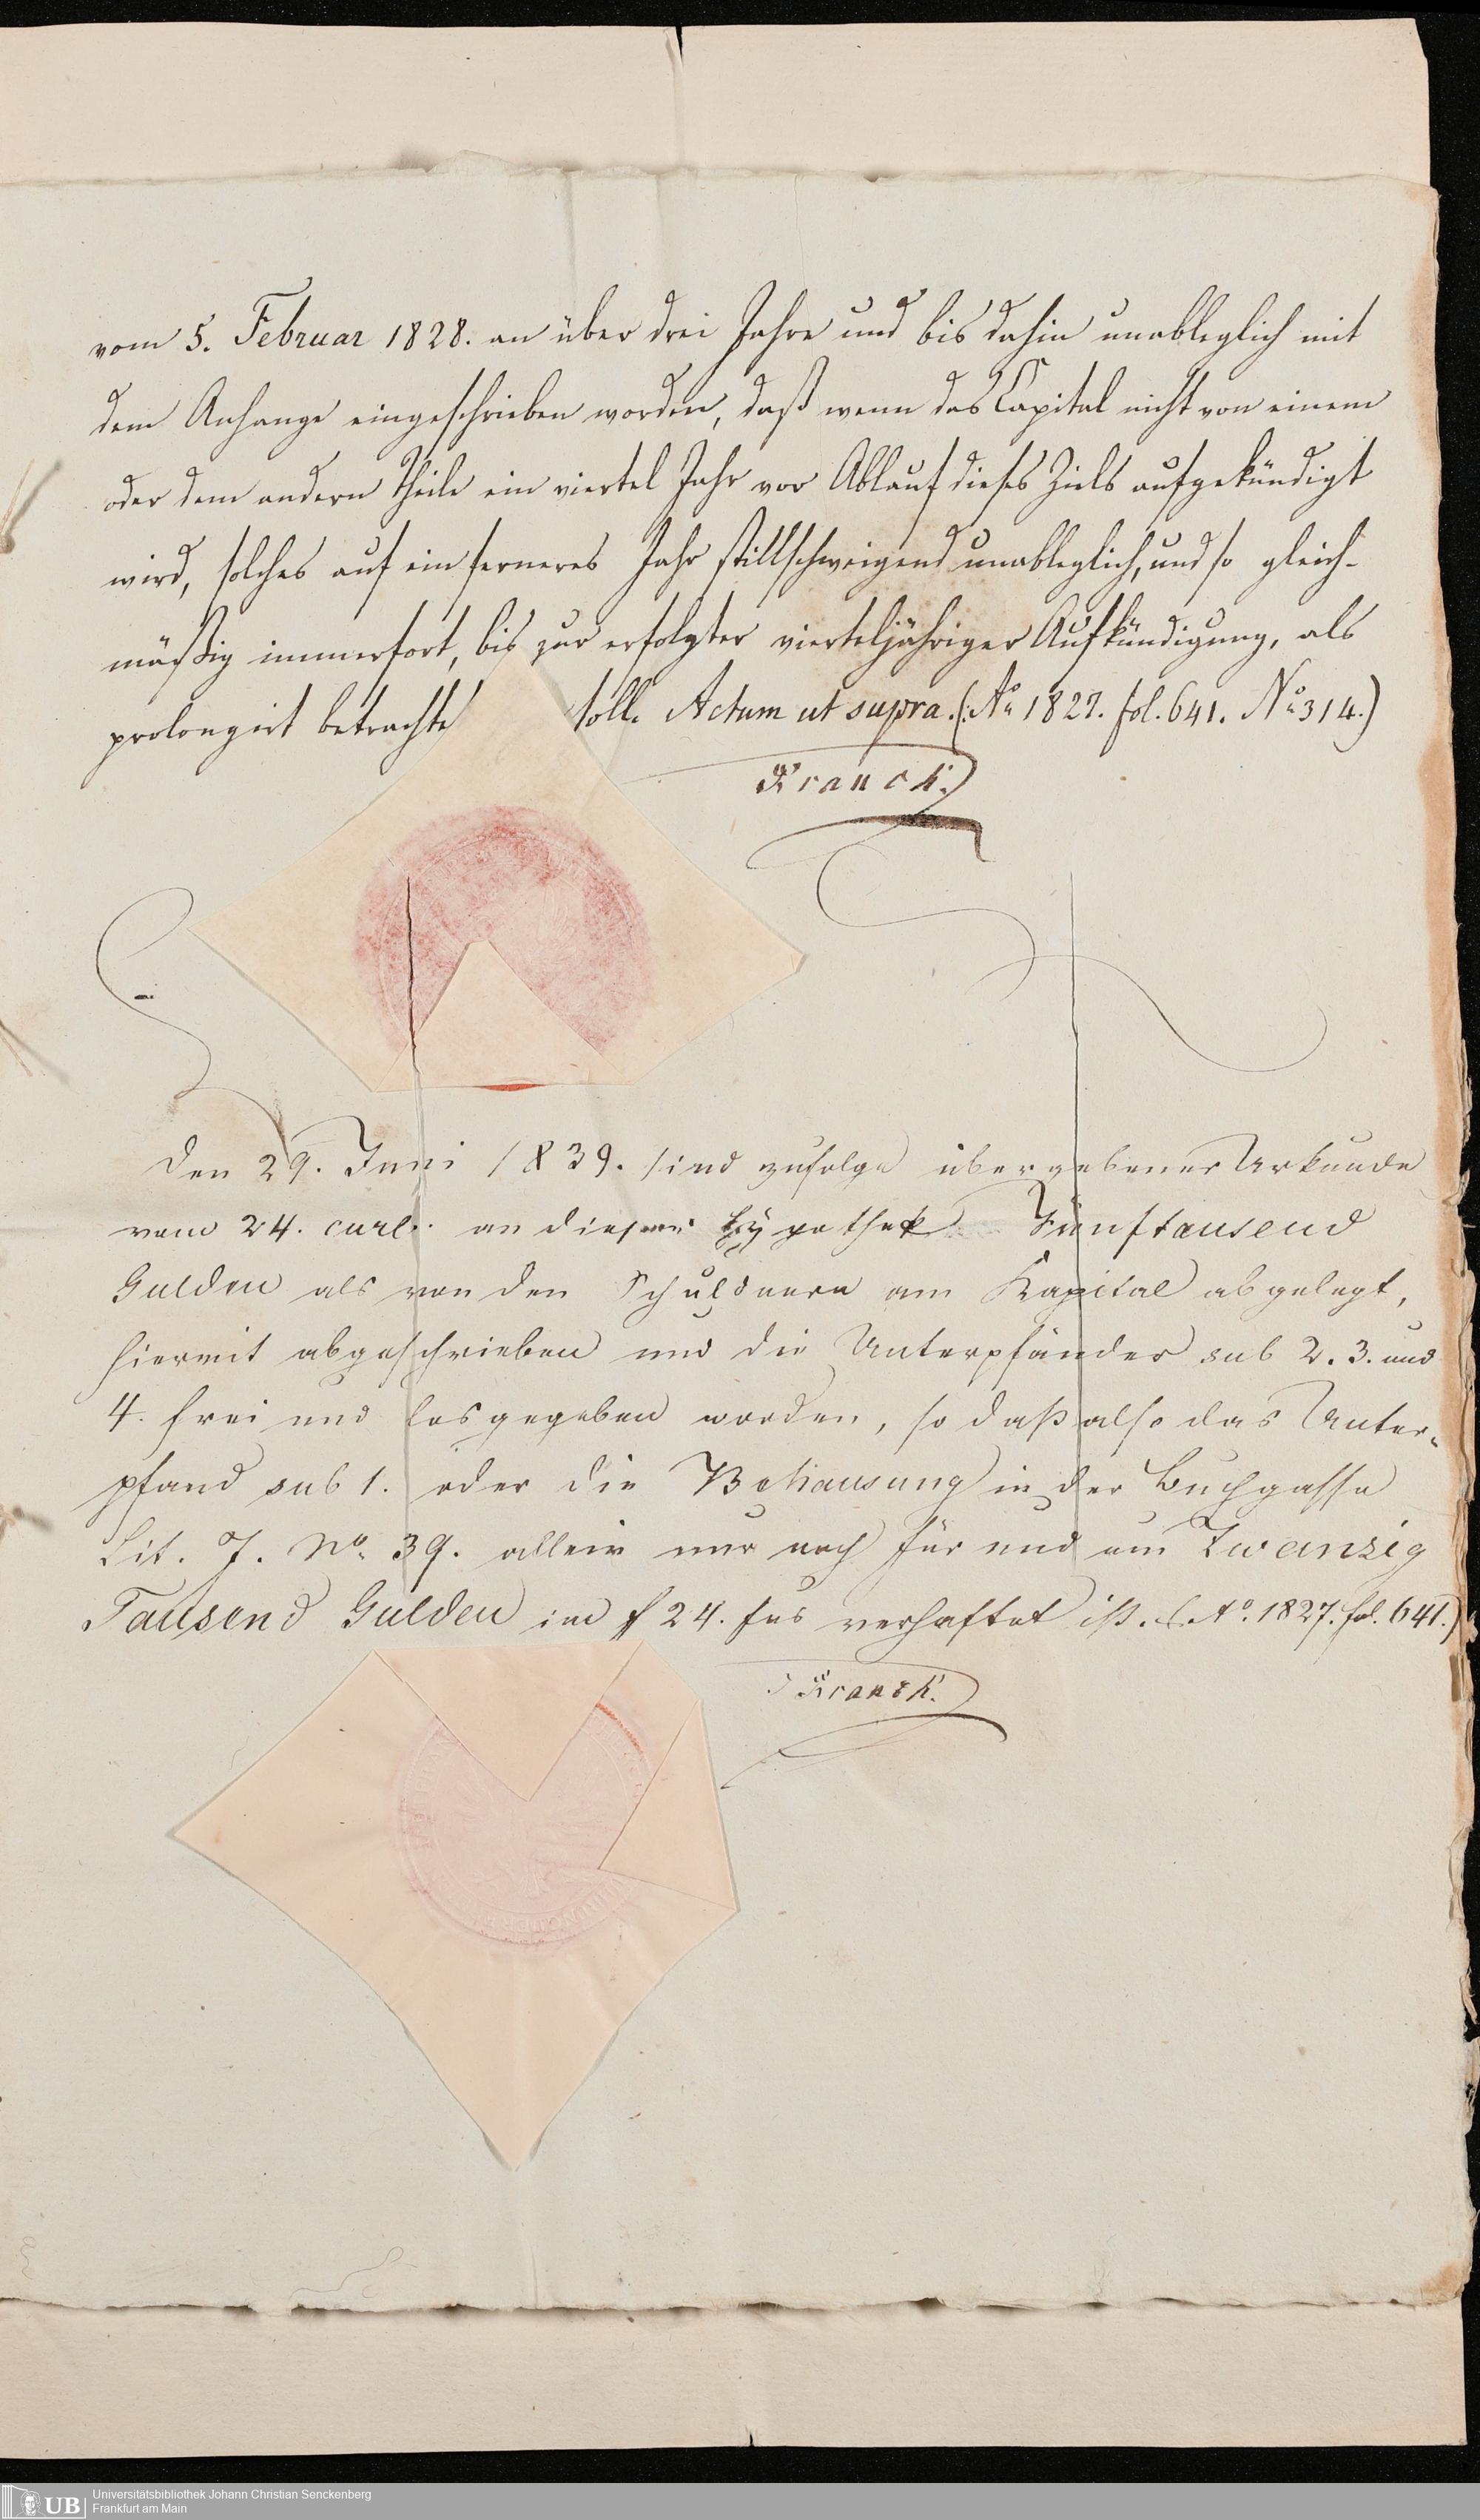 vom 5. Februar 1828. an über drei Jahre und bis dahin unableglich mit
dem Anhange eingeschrieben worden, daß wenn das Capital nicht von einem
oder dem andern Theile ein viertel Jahr vor Ablauf dieses Ziels aufgekündigt
wird, solches auf ein ferneres Jahr stillschweigend unableglich, und so gleich-
mäßig immerfort, bis zur erfolgter vierteljähriger Aufkündigung, als
prolongirt betrachte solle Actum ut supra. (: Ao 1827. fol. 641. No 314.)
Franck.
Den 29. Juni 1839. sind zufolge übergebener Urkunde
vom 24. curr. an dieser Hypothek Fünftausend
Gulden als von den Schuldnern am Kapital abgelegt,
hiermit abgeschrieben und die Unterpfänder sub 2. 3. und
4. frei und losgegeben worden, so daß also das Unter-
pfand sub 1. oder die Behausung in der Buchgasse
Lit. J. No. 39. allein nur noch für und um Zwanzig
Tausend Gulden im f 24. fus verhaftet ist. (: Ao. 1827. fol. 641.)
Franck.
UB
Universitätsbibliothek Johann Christian Senckenberg
Frankfurt am Main